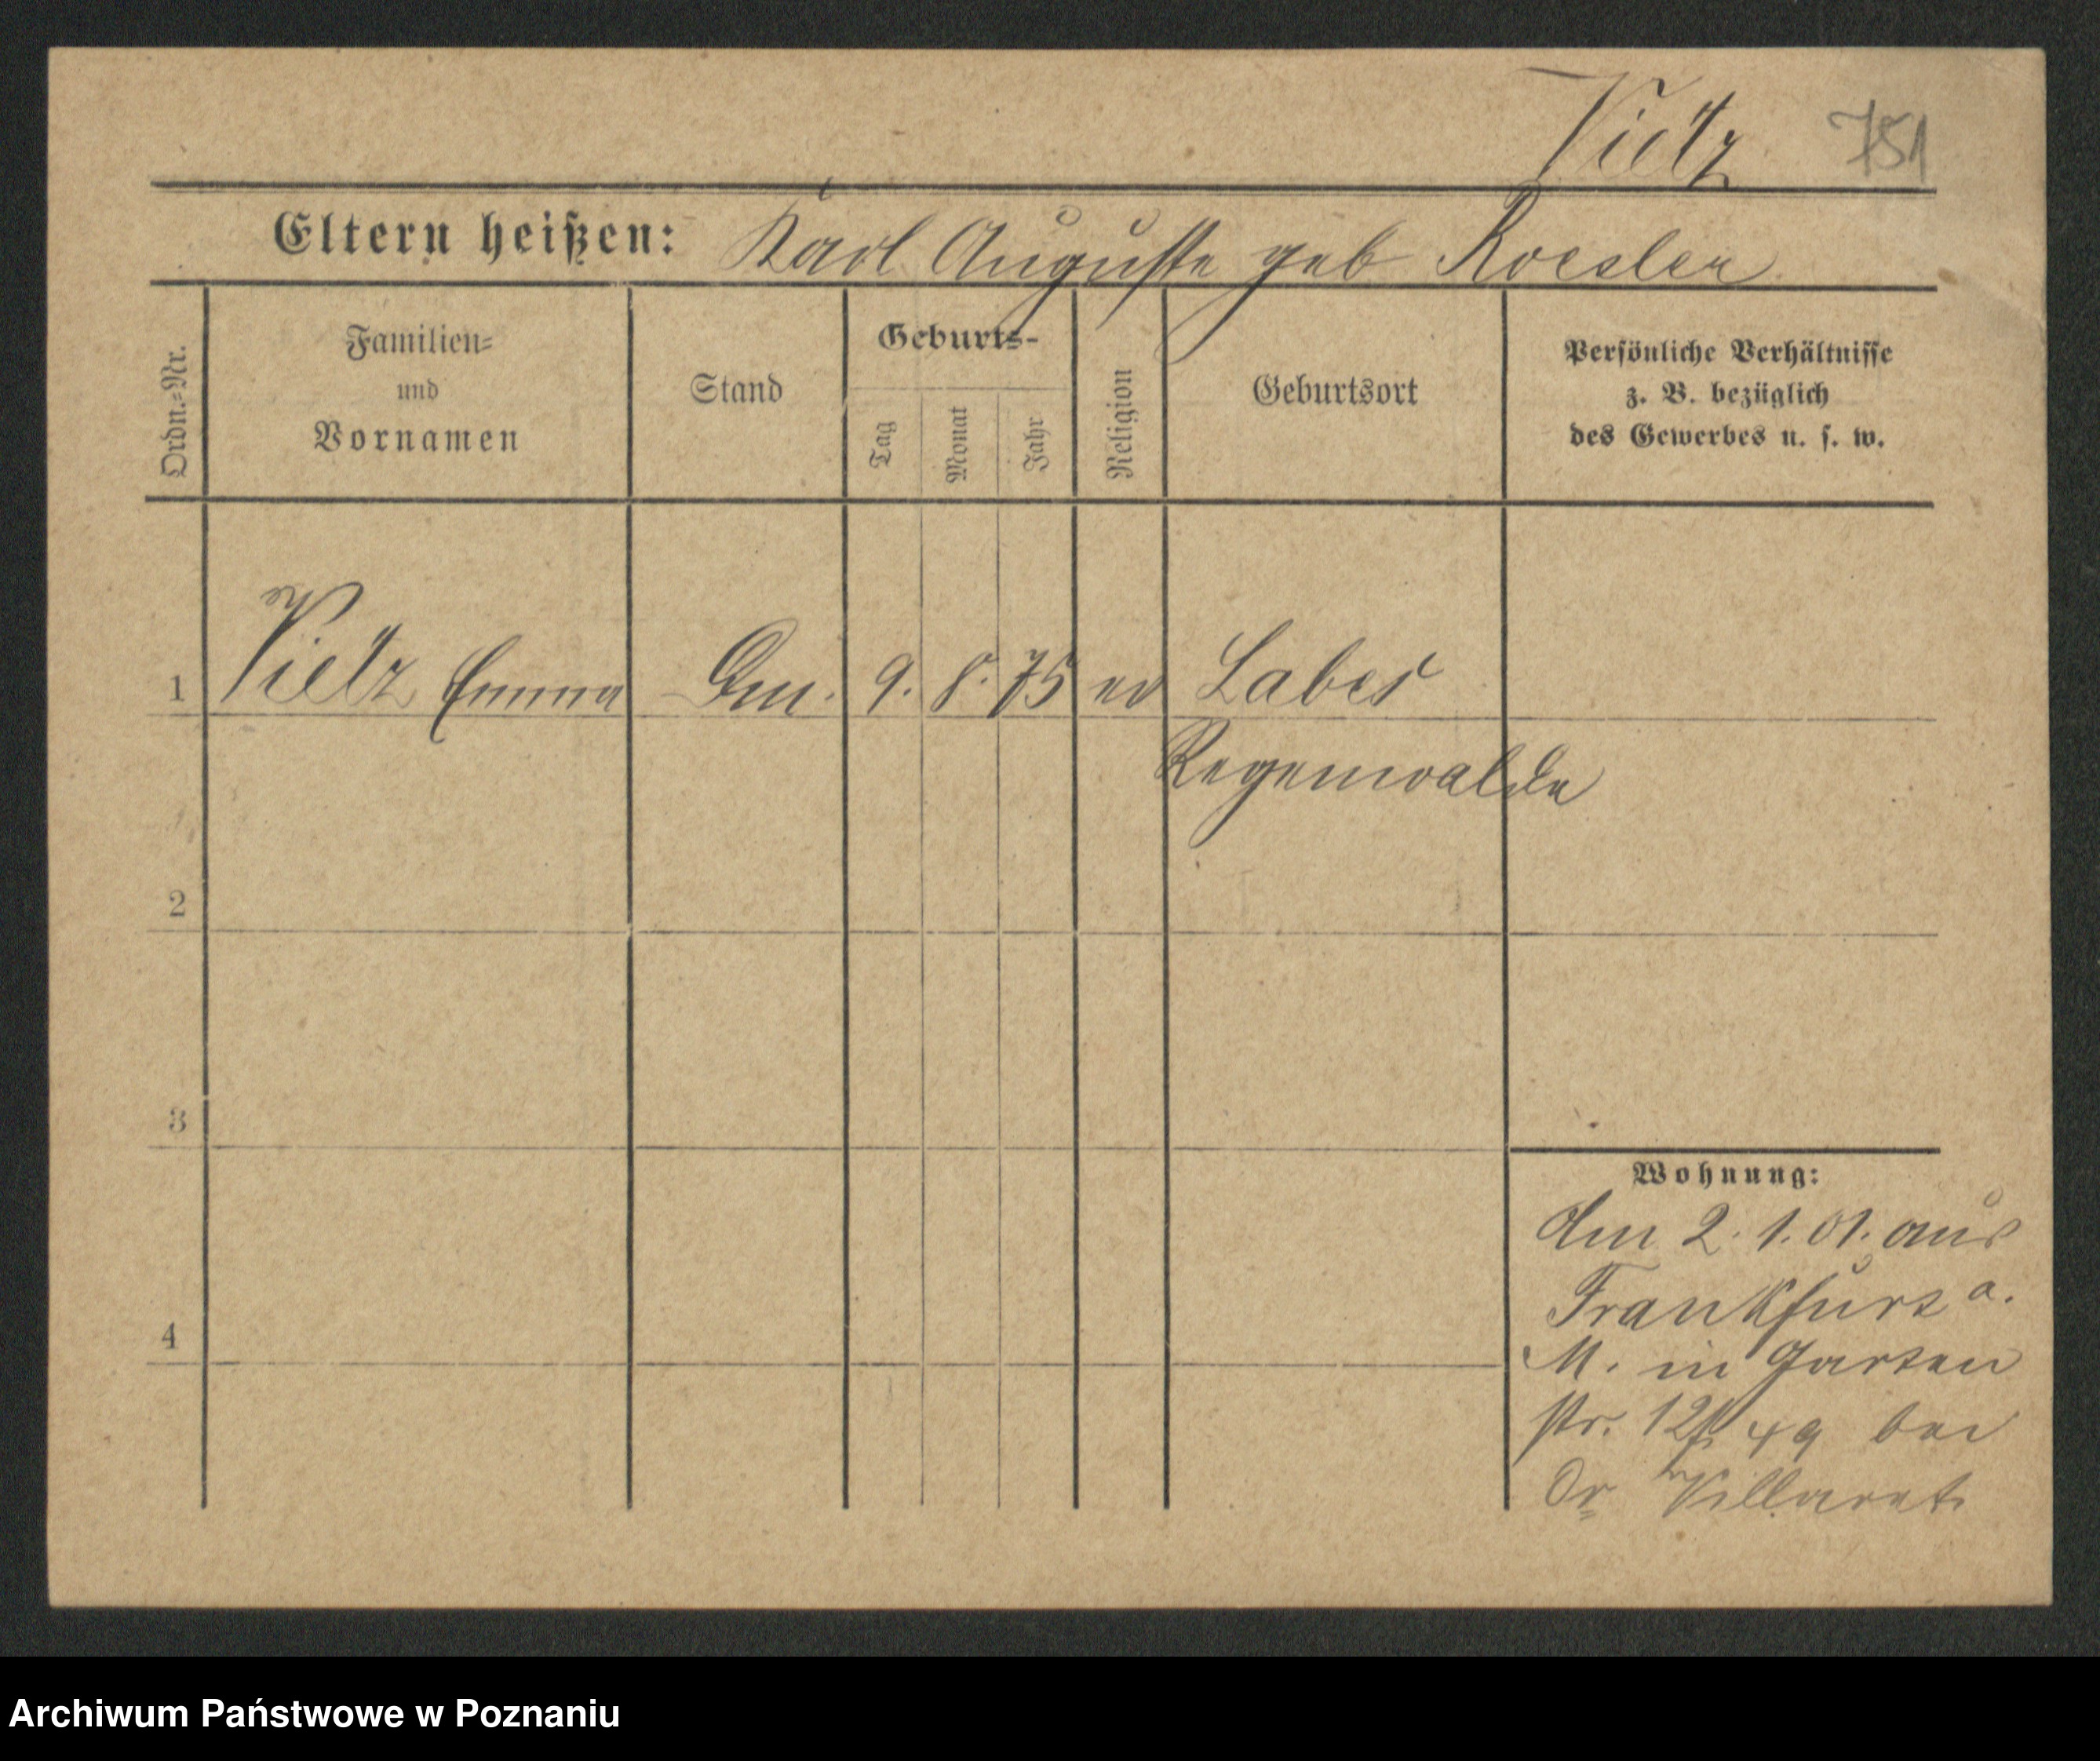 Vietz 751
Eltern heißen: Karl Auguste geb Roesler
Ordn.=Nr.
Familien=
und
Vornamen
Stand
Geburts-
Tag
Monat
Jahr
Religion
Geburtsort
Persönliche Verhältnisse
z. B. bezüglich
des Gewerbes u. s. w.
1 Vietz Emma 9. 8. 75 ev Labes
Regenwalde
2
3
4
Wohnung:
Am 2. 1. 01. aus
Frankfurt a.
M. in Garten
str. 49 bei
Dr Villaret
Archiwum Państwowe w Poznaniu